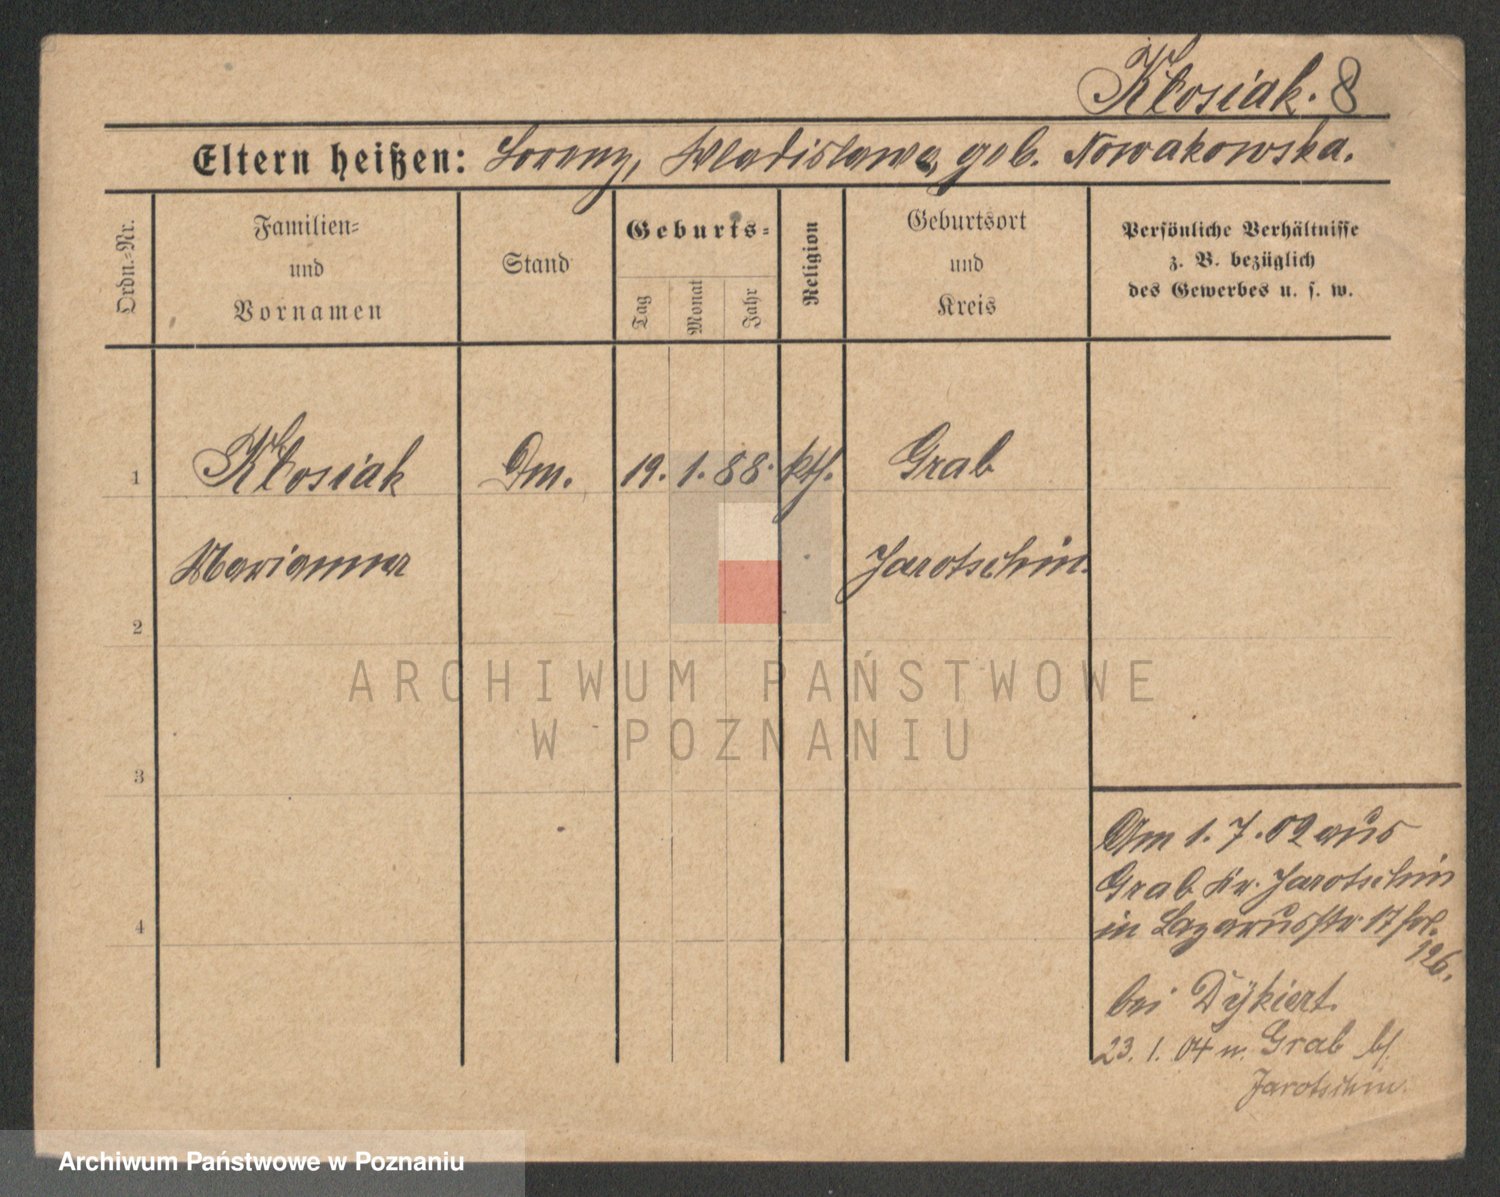 Kłosiak. 8
Eltern heißen: Lorenz, Wladislawa, geb. Nowakowska.
Ordn.-Nr.
Familien-
und
Vornamen
Stand
Geburts-
Tag
Monat
Jahr
Religion
Geburtsort
und
Kreis
Persönliche Verhältnisse
z. B. bezüglich
des Gewerbes u. s. w.
1 Kłosiak Dm. 19. 1. 88. kth. Grab
Marianna Jarotschin.
2
3
4
Am 1.7.02 aus
Grab Kr. Jarotschin
in Lazarusstr. 17
126.
bei Dÿkiert.
23. 1. 04 n. Grab b/
Jarotschin.
ARCHIWUM PAŃSTWOWE
W POZNANIU
Archiwum Państwowe w Poznaniu